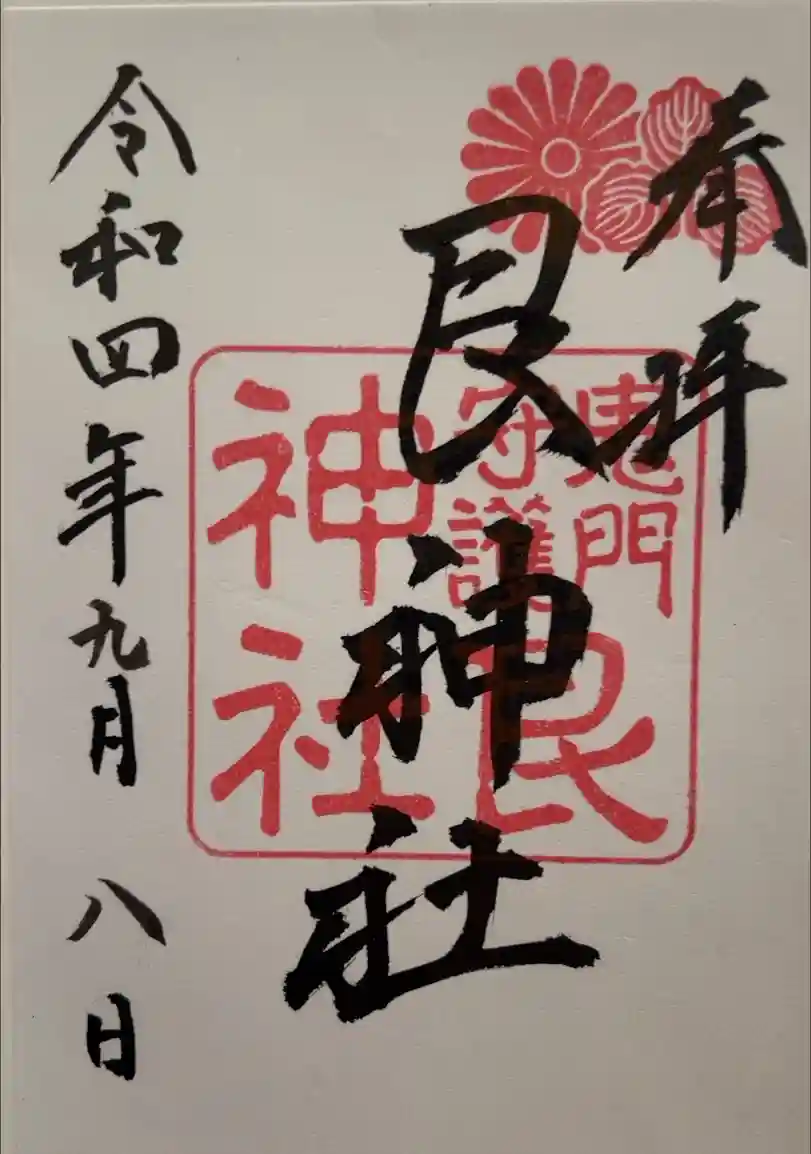 奉拝
鬼門
守護
艮
神社
艮神社
令和四年九月 八日